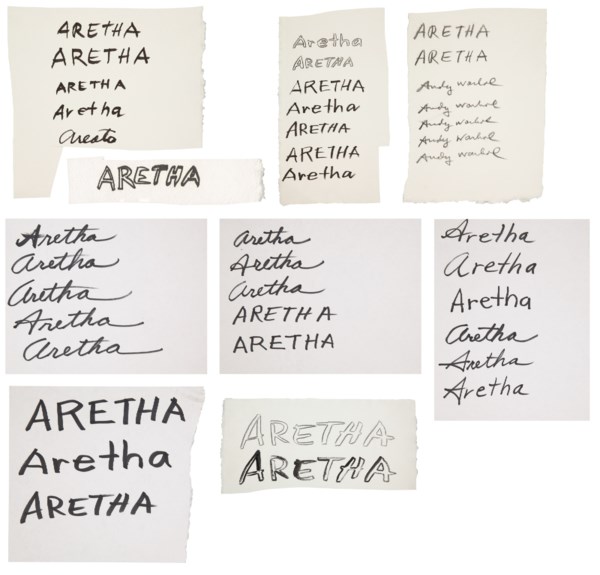 ARETHA
ARETHA
ARETHA
Aretha
Areato
ARETHA
Aretha
ARETHA
ARETHA
Aretha
ARETHA
ARETHA
Aretha
ARETHA
ARETHA
Andy Warhol
Andy Warhol
Andy Warhol
Andy Warhol
Andy Warhol
Aretha
Aretha
Aretha
Aretha
Aretha
Aretha
Aretha
Aretha
ARETHA
ARETHA
Aretha
Aretha
Aretha
Aretha
Aretha
Aretha
ARETHA
Aretha
ARETHA
ARETHA
ARETHA